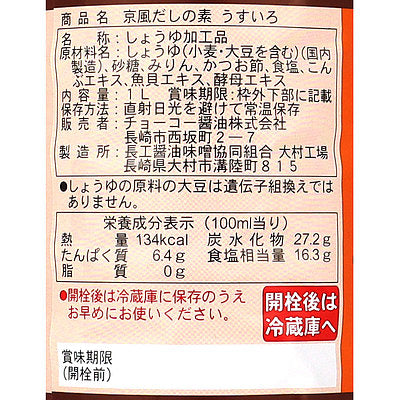 商品名 京風だしの素 うすいろ
名称:しょうゆ加工品
原材料名:しょうゆ(小麦・大豆を含む)(国内
製造)、砂糖、みりん、かつお節、食塩、こん
ぶエキス、魚貝エキス、酵母エキス
内容量:1L 賞味期限:枠外下部に記載
保存方法:直射日光を避けて常温保存
販売者:チョーコー醤油株式会社
長崎市西坂町2-7
製造所:長工醤油味噌協同組合 大村工場
長崎県大村市溝陸町815
●しょうゆの原料の大豆は遺伝子組換えでは
ありません。
栄養成分表示(100ml当り)
熱量 134kcal 炭水化物 27.2g
たんぱく質 6.4g 食塩相当量 16.3g
脂質 0g
●開栓後は冷蔵庫に保存のうえ
お早めにお使いください。
開栓後は
冷蔵庫へ
賞味期限
(開栓前)